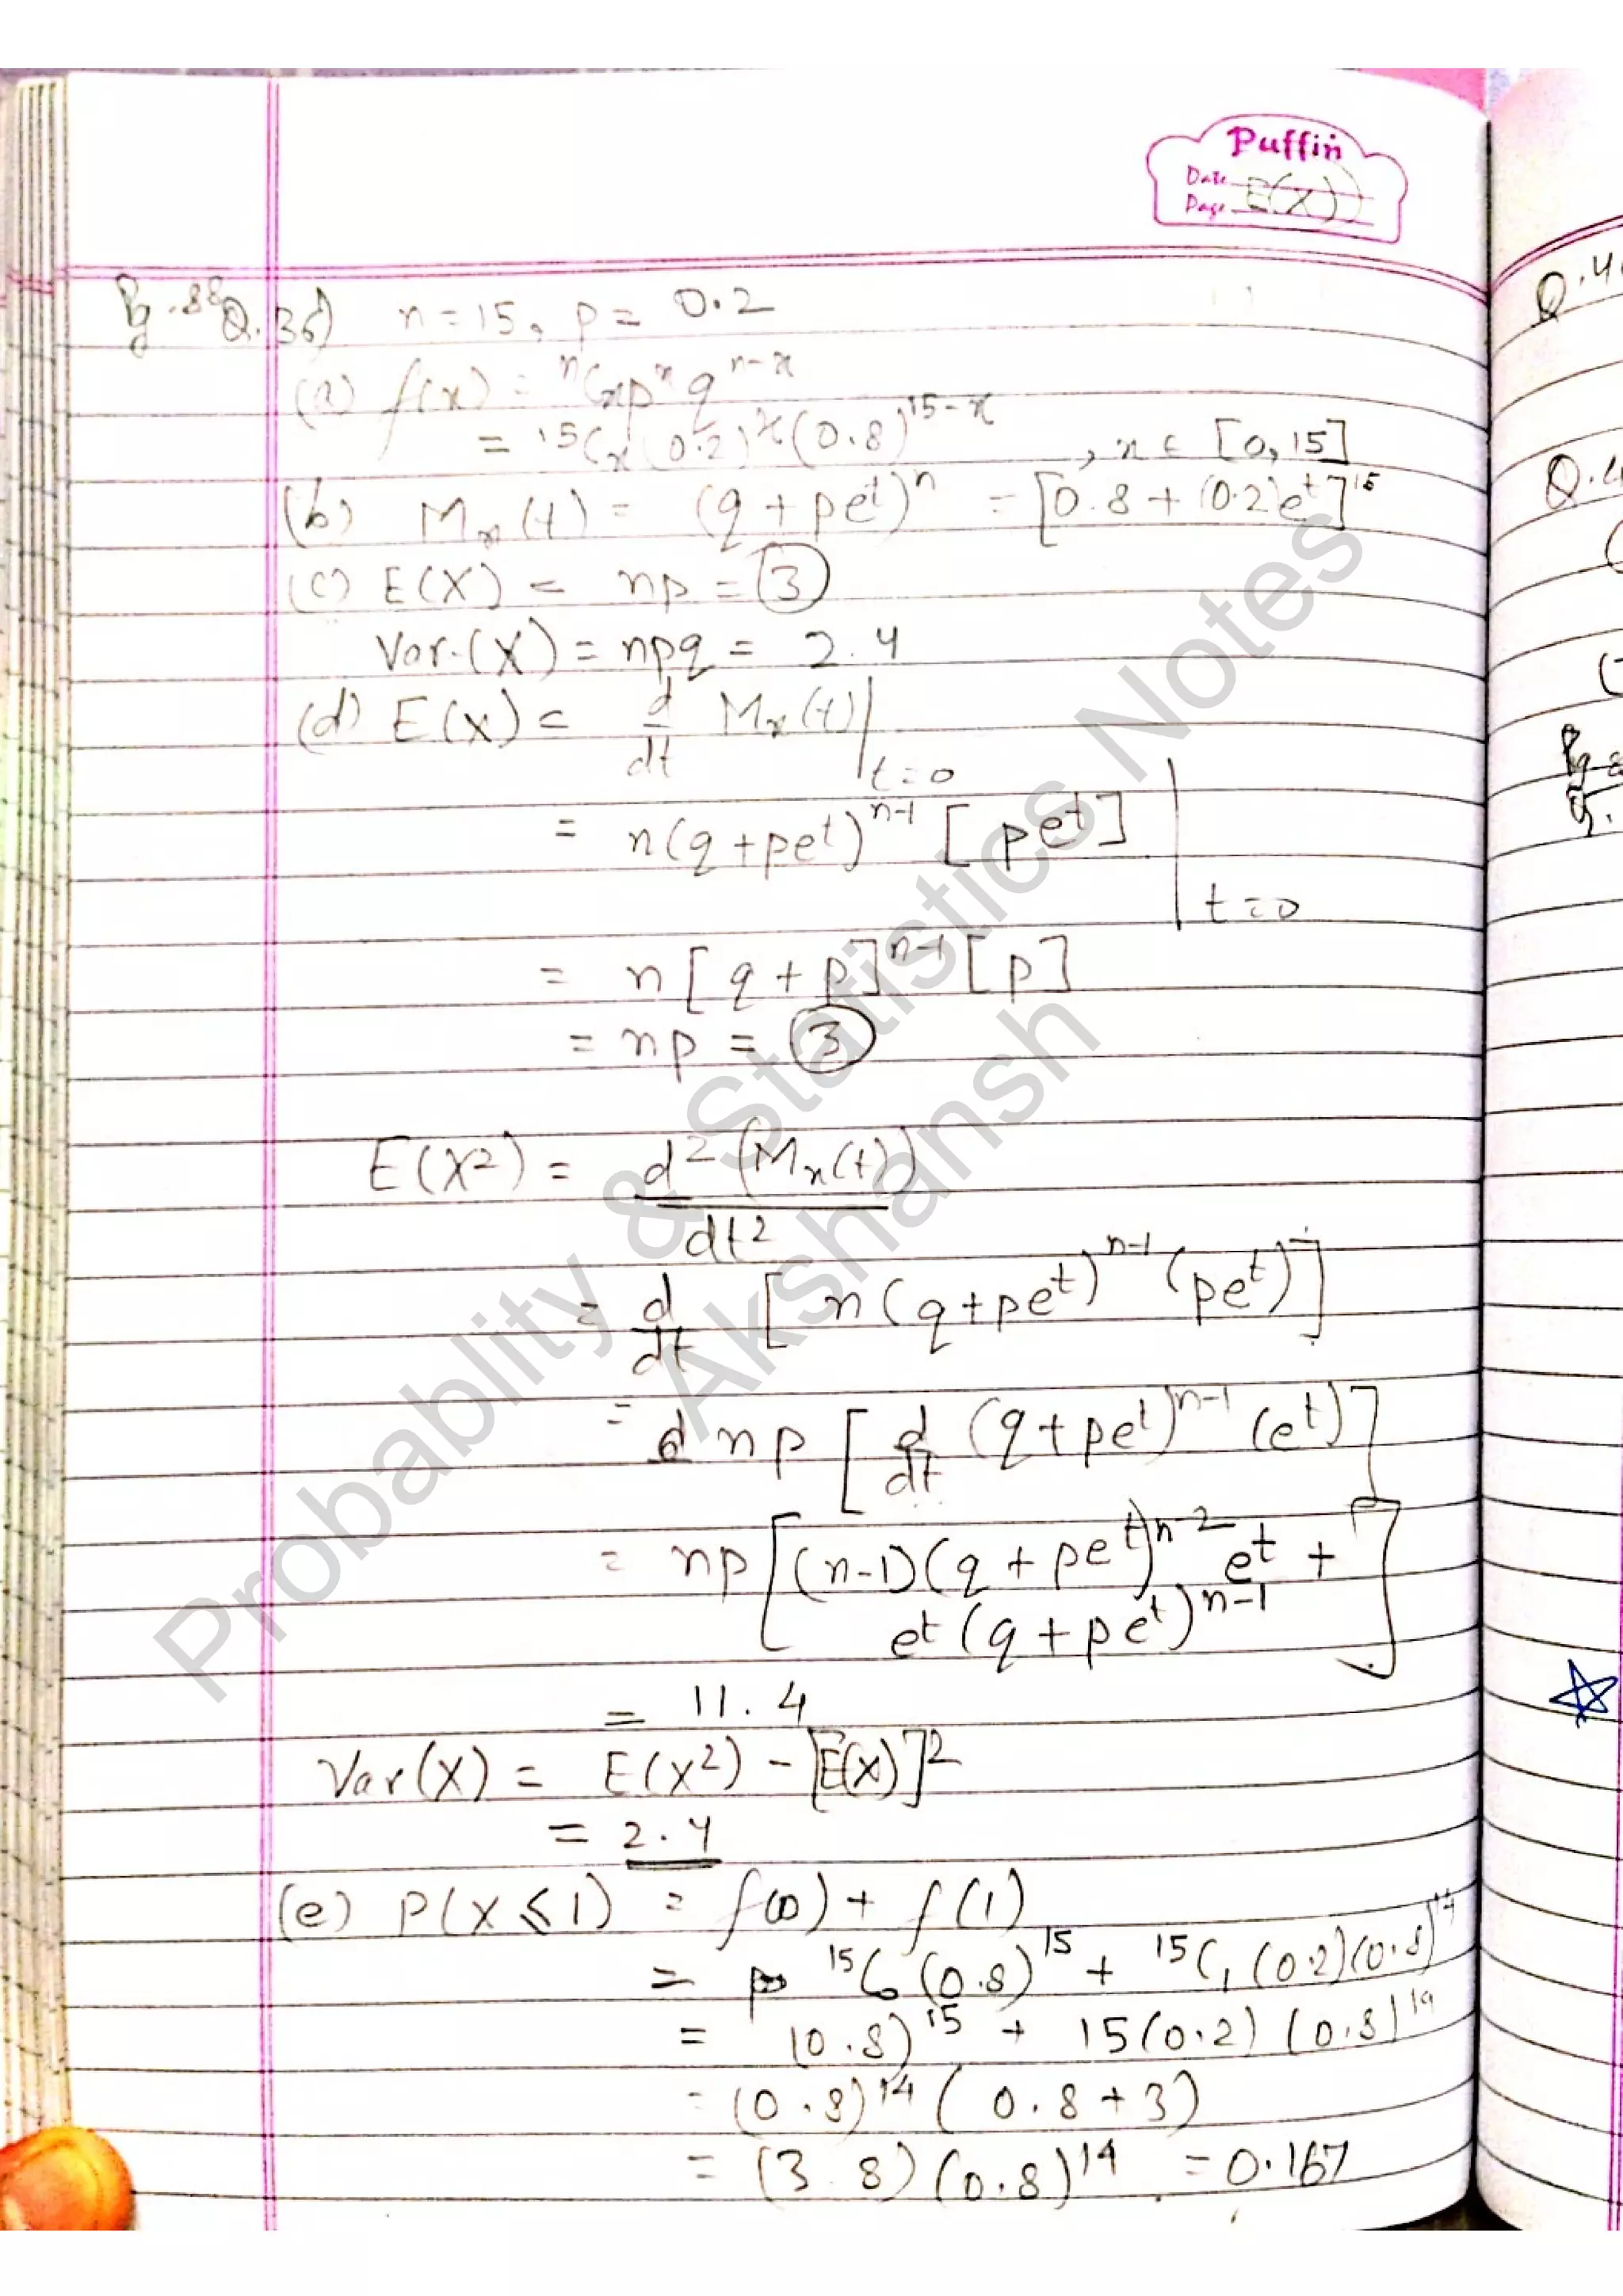 Puffin
Date
Page E(X)
Pg.88 Q.36) n=15, p= 0.2
(a) f(x) = ⁿCₓpˣqⁿ⁻ˣ
= ¹⁵Cₓ(0.2)ˣ(0.8)¹⁵⁻ˣ , x ∈ [0,15]
(b) Mₓ(t) = (q+peᵗ)ⁿ = [0.8+(0.2)eᵗ]¹⁵
(c) E(X) = np = 3
Var.(X) = npq = 2.4
(d) E(X) = d/dt Mₓ(t)|t=0
= n(q+peᵗ)ⁿ⁻¹ [peᵗ] |t=0
= n[q+p]ⁿ⁻¹[p]
= np = 3
E(X²) = d²(Mₓ(t))/dt²
= d/dt [n(q+peᵗ)ⁿ⁻¹(peᵗ)]
= d np [d/dt (q+peᵗ)ⁿ⁻¹ (eᵗ)]
= np[(n-1)(q+peᵗ)ⁿ⁻² eᵗ +
eᵗ(q+peᵗ)ⁿ⁻¹]
= 11.4
Var(X) = E(X²) - [E(X)]²
= 2.4
(e) P(X≤1) = f(0) + f(1)
= ¹⁵C₀(0.8)¹⁵ + ¹⁵C₁(0.2)(0.8)¹⁴
= (0.8)¹⁵ + 15(0.2)(0.8)¹⁴
= (0.8)¹⁴(0.8+3)
= (3.8)(0.8)¹⁴ = 0.167
Probablity & Statistics Notes
Akshansh